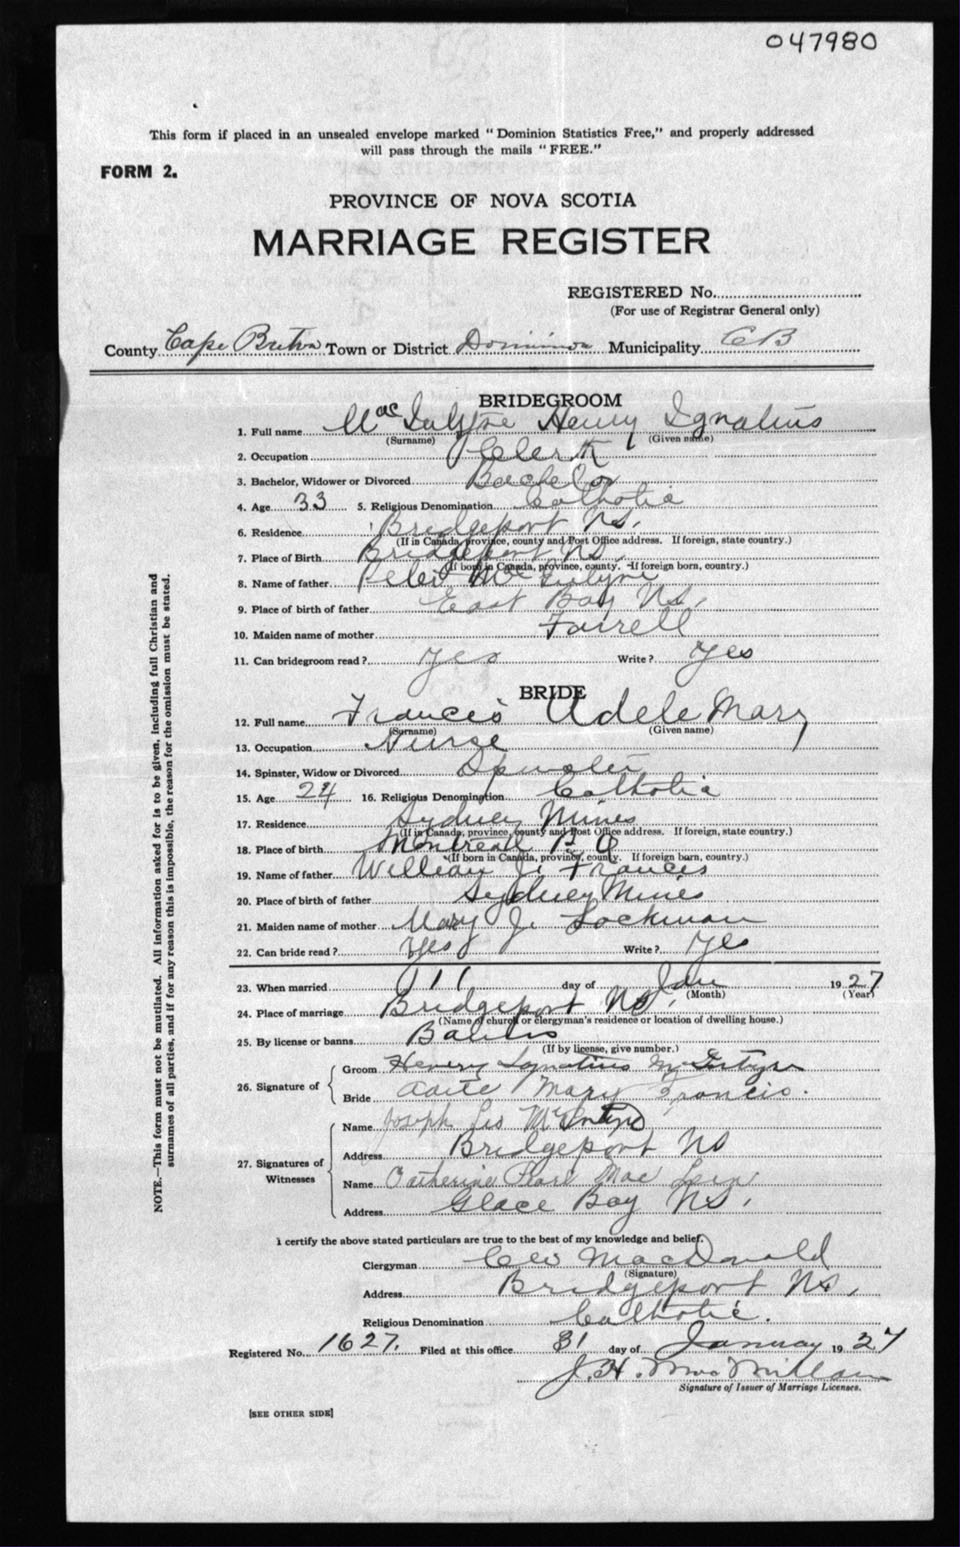 047980
This form if placed in an unsealed envelope marked "Dominion Statistics Free," and properly addressed
will pass through the mails "FREE."
FORM 2.
PROVINCE OF NOVA SCOTIA
MARRIAGE REGISTER
REGISTERED No.
(For use of Registrar General only)
County Cape Breton Town or District Dominion Municipality CB
BRIDEGROOM
1. Full name Mac Intyre Henry Ignatius
(Surname) (Given name)
2. Occupation Clerk
3. Bachelor, Widower or Divorced Bachelor
4. Age 33 5. Religious Denomination Catholic
6. Residence Bridgeport N.S.
(If in Canada, province, county and Post Office address. If foreign, state country.)
7. Place of Birth Bridgeport N.S.
(If born in Canada, province, county. If foreign born, country.)
8. Name of father Peter Mac Intyre
9. Place of birth of father East Bay N.S.
10. Maiden name of mother Farrell
11. Can bridegroom read? yes Write? yes
BRIDE
12. Full name Francis Adele Mary
(Surname) (Given name)
13. Occupation Nurse
14. Spinster, Widow or Divorced Spinster
15. Age 24 16. Religious Denomination Catholic
17. Residence Sydney Mines
(If in Canada, province, county and Post Office address. If foreign, state country.)
18. Place of birth Montreal P Q
(If born in Canada, province, county. If foreign born, country.)
19. Name of father William J. Francis
20. Place of birth of father Sydney Mines
21. Maiden name of mother Mary J. Lockman
22. Can bride read? Yes Write? yes
23. When married 11 day of Jan 1927
(Month) (Year)
24. Place of marriage Bridgeport N.S.
(Name of church or clergyman's residence or location of dwelling house.)
25. By license or banns
(If by license, give number.)
26. Signature of
Groom Henry Ignatius McIntyre
Bride Mary Francis.
27. Signatures of Witnesses
Name Joseph Leo
Address Bridgeport NS
Name Catherine Pearl Mac
Address Glace Bay N.S.
I certify the above stated particulars are true to the best of my knowledge and belief.
Clergyman MacDonald
(Signature)
Address Bridgeport N.S.
Religious Denomination Catholic.
Registered No. 1627. Filed at this office 31 day of January 1927
J. H. MacMillan
Signature of Issuer of Marriage Licenses.
[SEE OTHER SIDE]
NOTE.—This form must not be mutilated. All information asked for is to be given, including full Christian and
surnames of all parties, and if for any reason this is impossible, the reason for the omission must be stated.